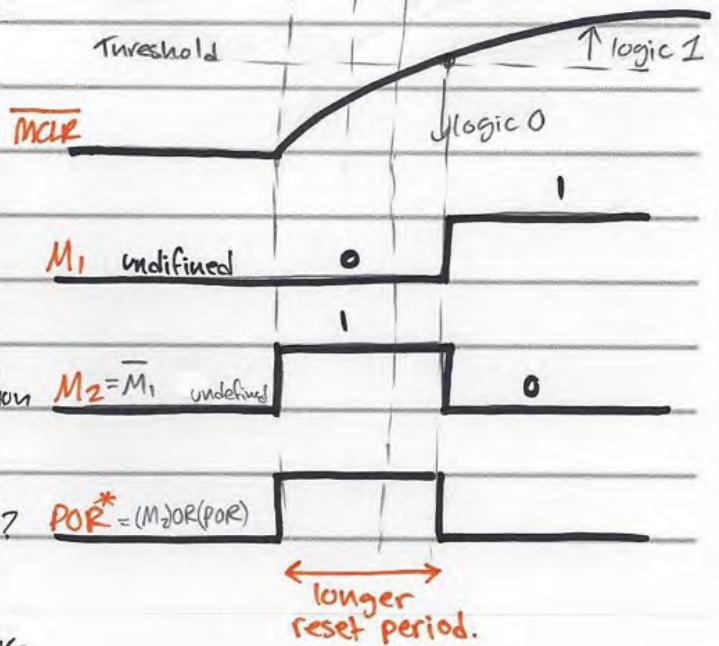 Threshold
↑ logic 1
M̅C̅L̅R̅
↓logic 0
1
M₁ undifined 0
1
M₂=M̅₁ undefined 0
?
POR* = (M₂)OR(POR)
longer
reset period.